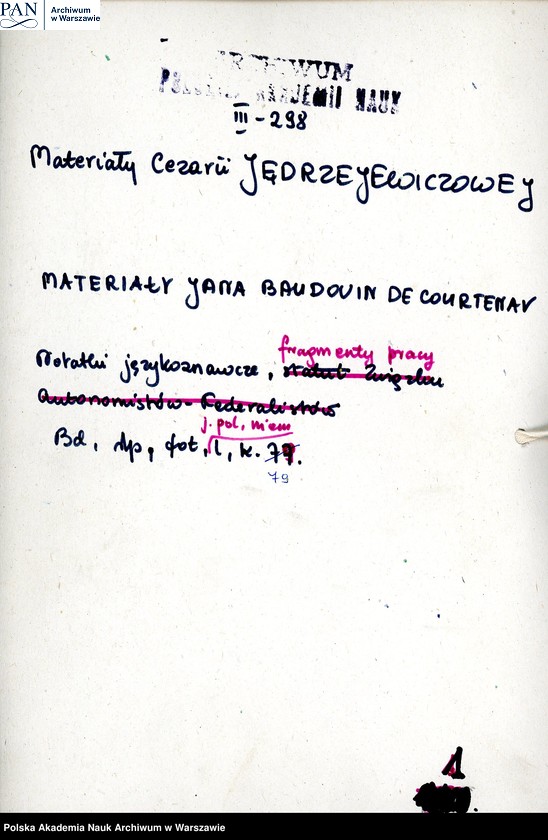 PAN
Archiwum
w Warszawie
ARCHIWUM
POLSKIEJ AKADEMII NAUK
III - 298
Materiały Cezarii JĘDRZEJEWICZOWEJ
MATERIAŁY JANA BAUDOUIN DE COURTENAY
fragmenty pracy
Notatki językoznawcze, statut Związku
Autonomistów-Federalistów
j. pol, niem
Bd, rkp, fot, 1, k. 77.
79
1
Polska Akademia Nauk Archiwum w Warszawie